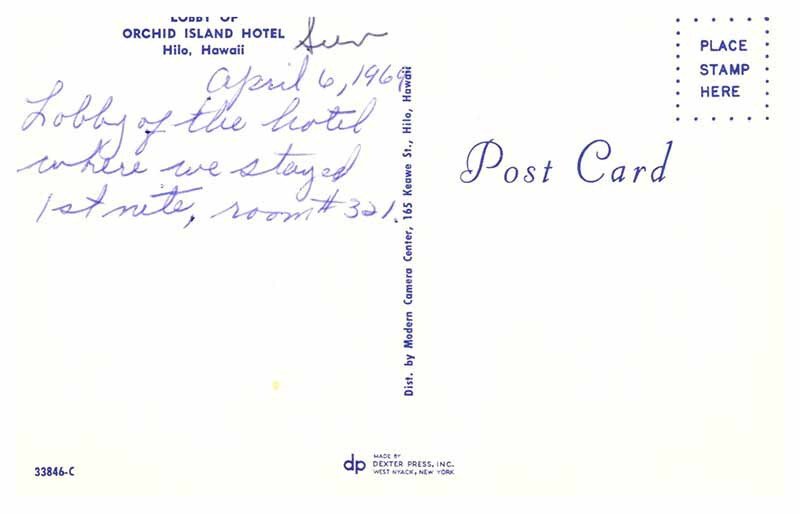 LOBBY OF
ORCHID ISLAND HOTEL
Hilo, Hawaii
Sun
April 6, 1969
Lobby of the hotel
where we stayed
1st nite, room # 321.
Dist. by Modern Camera Center, 165 Keawe St., Hilo, Hawaii
PLACE
STAMP
HERE
Post Card
33846-C
dp
MADE BY
DEXTER PRESS, INC.
WEST NYACK, NEW YORK